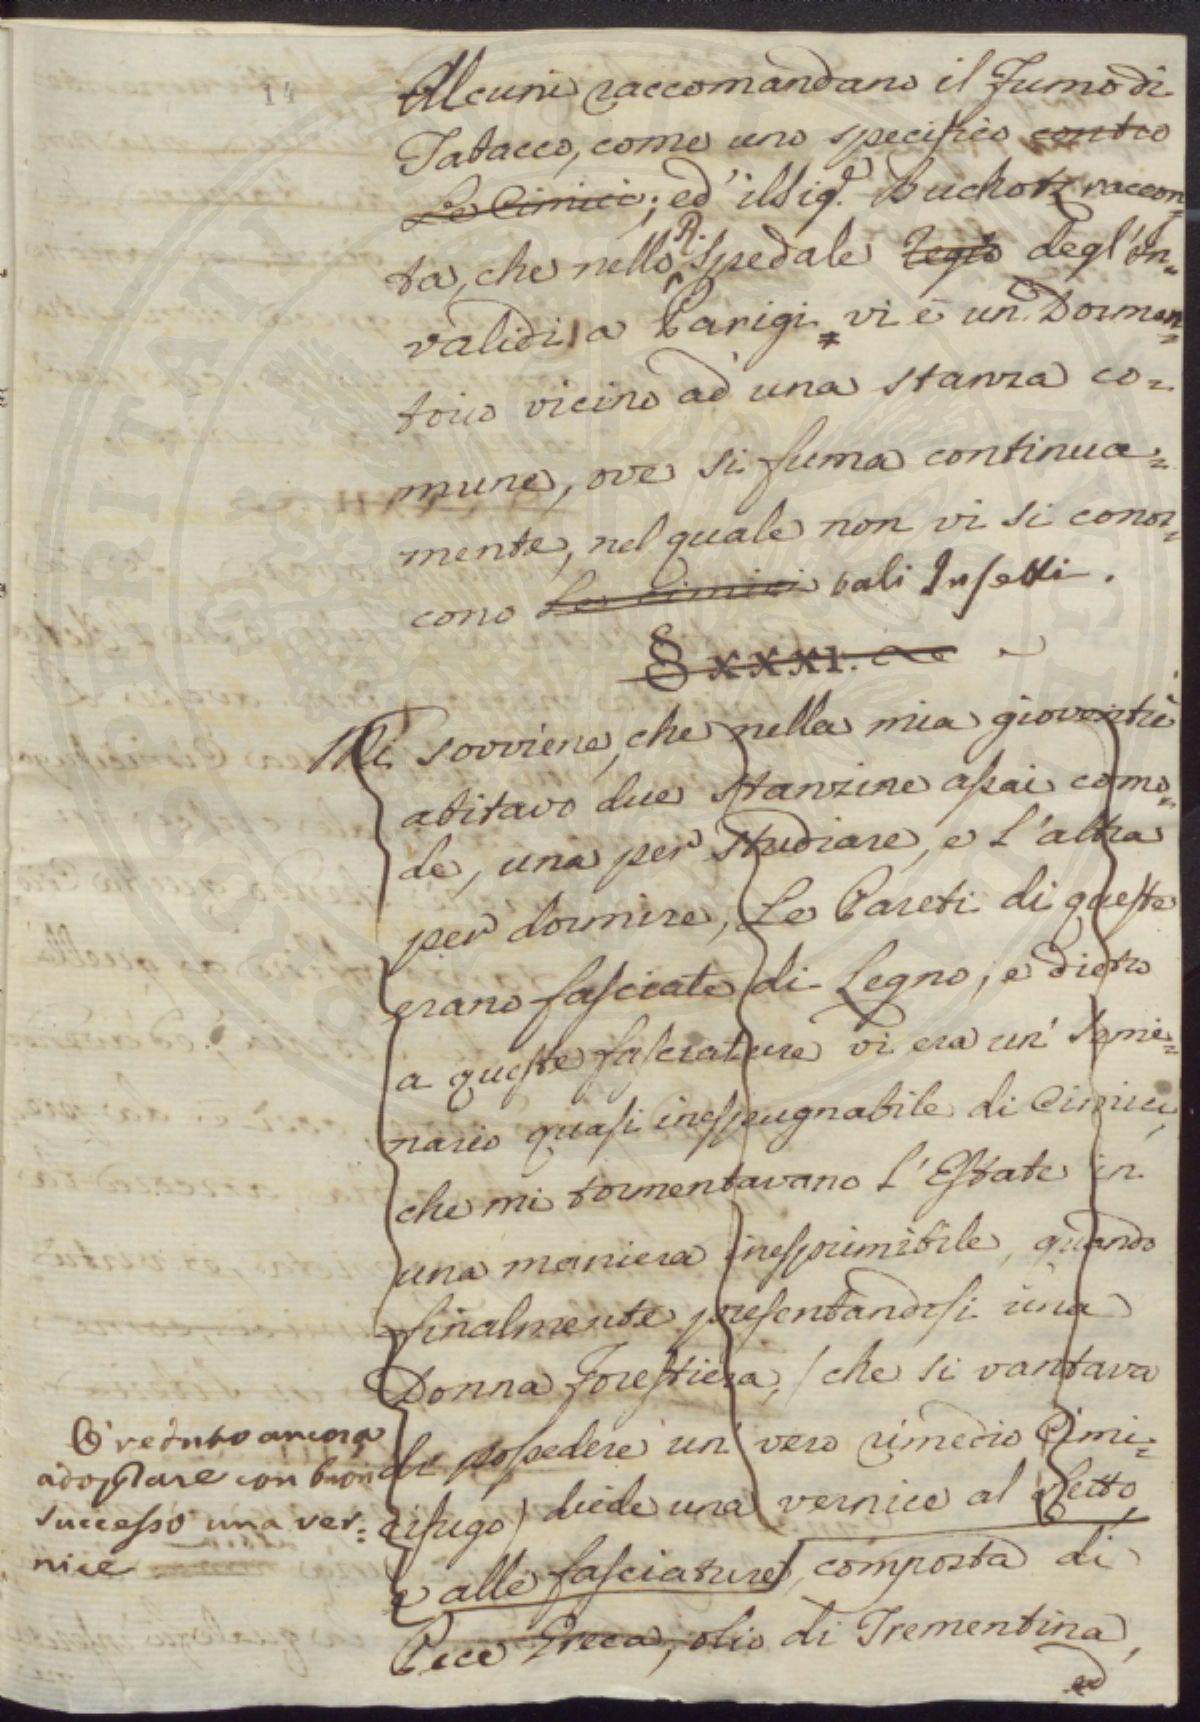 14
Alcuni raccomandano il Fumo di
Tabacco, come uno specifico contro
Le Cimici; ed' il Sigr. Buchotz raccon=
ta, che nello R. Spedale Regio degl' In=
validi a Parigi vi è un Dormen=
torio vicino ad una stanza co=
mune, ove si fuma continua=
mente, nel quale non vi si conos=
cono Le Cimici tali Insetti.
§ XXXI.
Mi sovviene, che nella mia gioventù
abitavo due stanzine assai como=
de, una per studiare, e l'altra
per dormire, Le Pareti di queste
erano fasciate di Legno, e dietro
a queste fasciature vi era un' Semi=
nario quasi inespugnabile di Cimici,
che mi tormentavano l'Estate in
una maniera inesprimibile, quando
finalmente presentandosi una
Donna Forestiera, (che si vantava
di possedere un' vero rimedio Cimi=
cifugo) diede una vernice al Letto,
e alle fasciature, composta di
Pece Greca, olio di Trementina,
ed
È veduto ancora
adoprare con buon
successo una ver=
nice